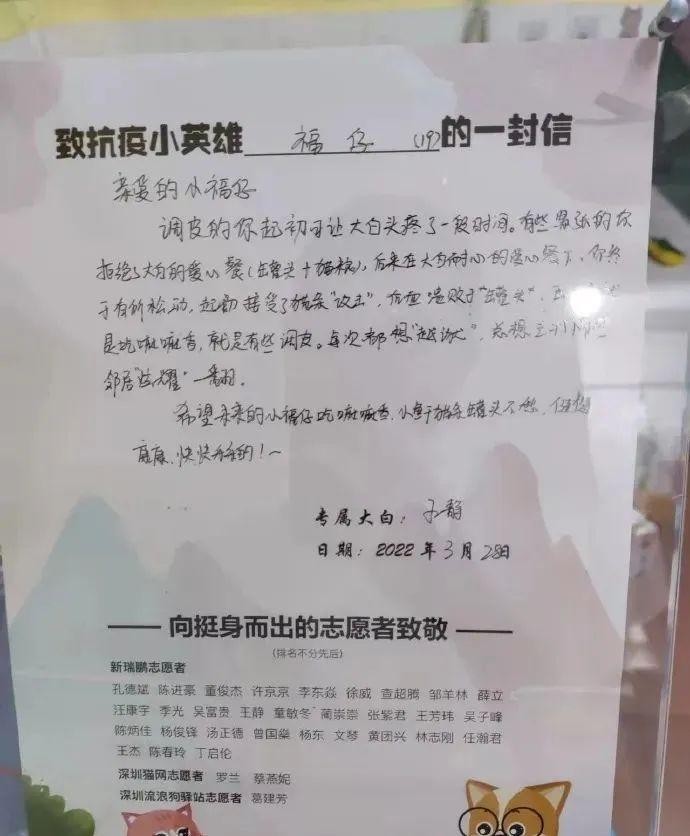 致抗疫小英雄 福仔 (19) 的一封信
亲爱的小福仔
调皮的你起初可让大白头疼了一段时间。有些紧张的你
拒绝了大白的爱心餐(罐头+猫粮),后来在大白耐心的爱心餐下,你终
于有所松动,起初接受了猫条"攻击",后面溃败于"罐头"。
是吃嘛嘛香,就是有些调皮。每次都想"越狱",总想
邻居"炫耀"一翻。
希望未来的小福仔吃嘛嘛香,小鱼干猫条罐头不愁,
健康,快快乐乐的!~
专属大白:王静
日期:2022年3月28日
向挺身而出的志愿者致敬
(排名不分先后)
新瑞鹏志愿者
孔德斌 陈进豪 董俊杰 许京京 李东焱 徐威 查超腾 邹羊林 薛立
汪康宇 季光 吴富贵 王静 童敏冬 蔺崇崇 张紫君 王芳玮 吴子峰
陈炳佳 杨俊锋 汤正德 曾国燊 杨东 文琴 黄团兴 林志刚 任瀚君
王杰 陈春玲 丁启伦
深圳猫网志愿者 罗兰 蔡燕妮
深圳流浪狗驿站志愿者 葛建芳